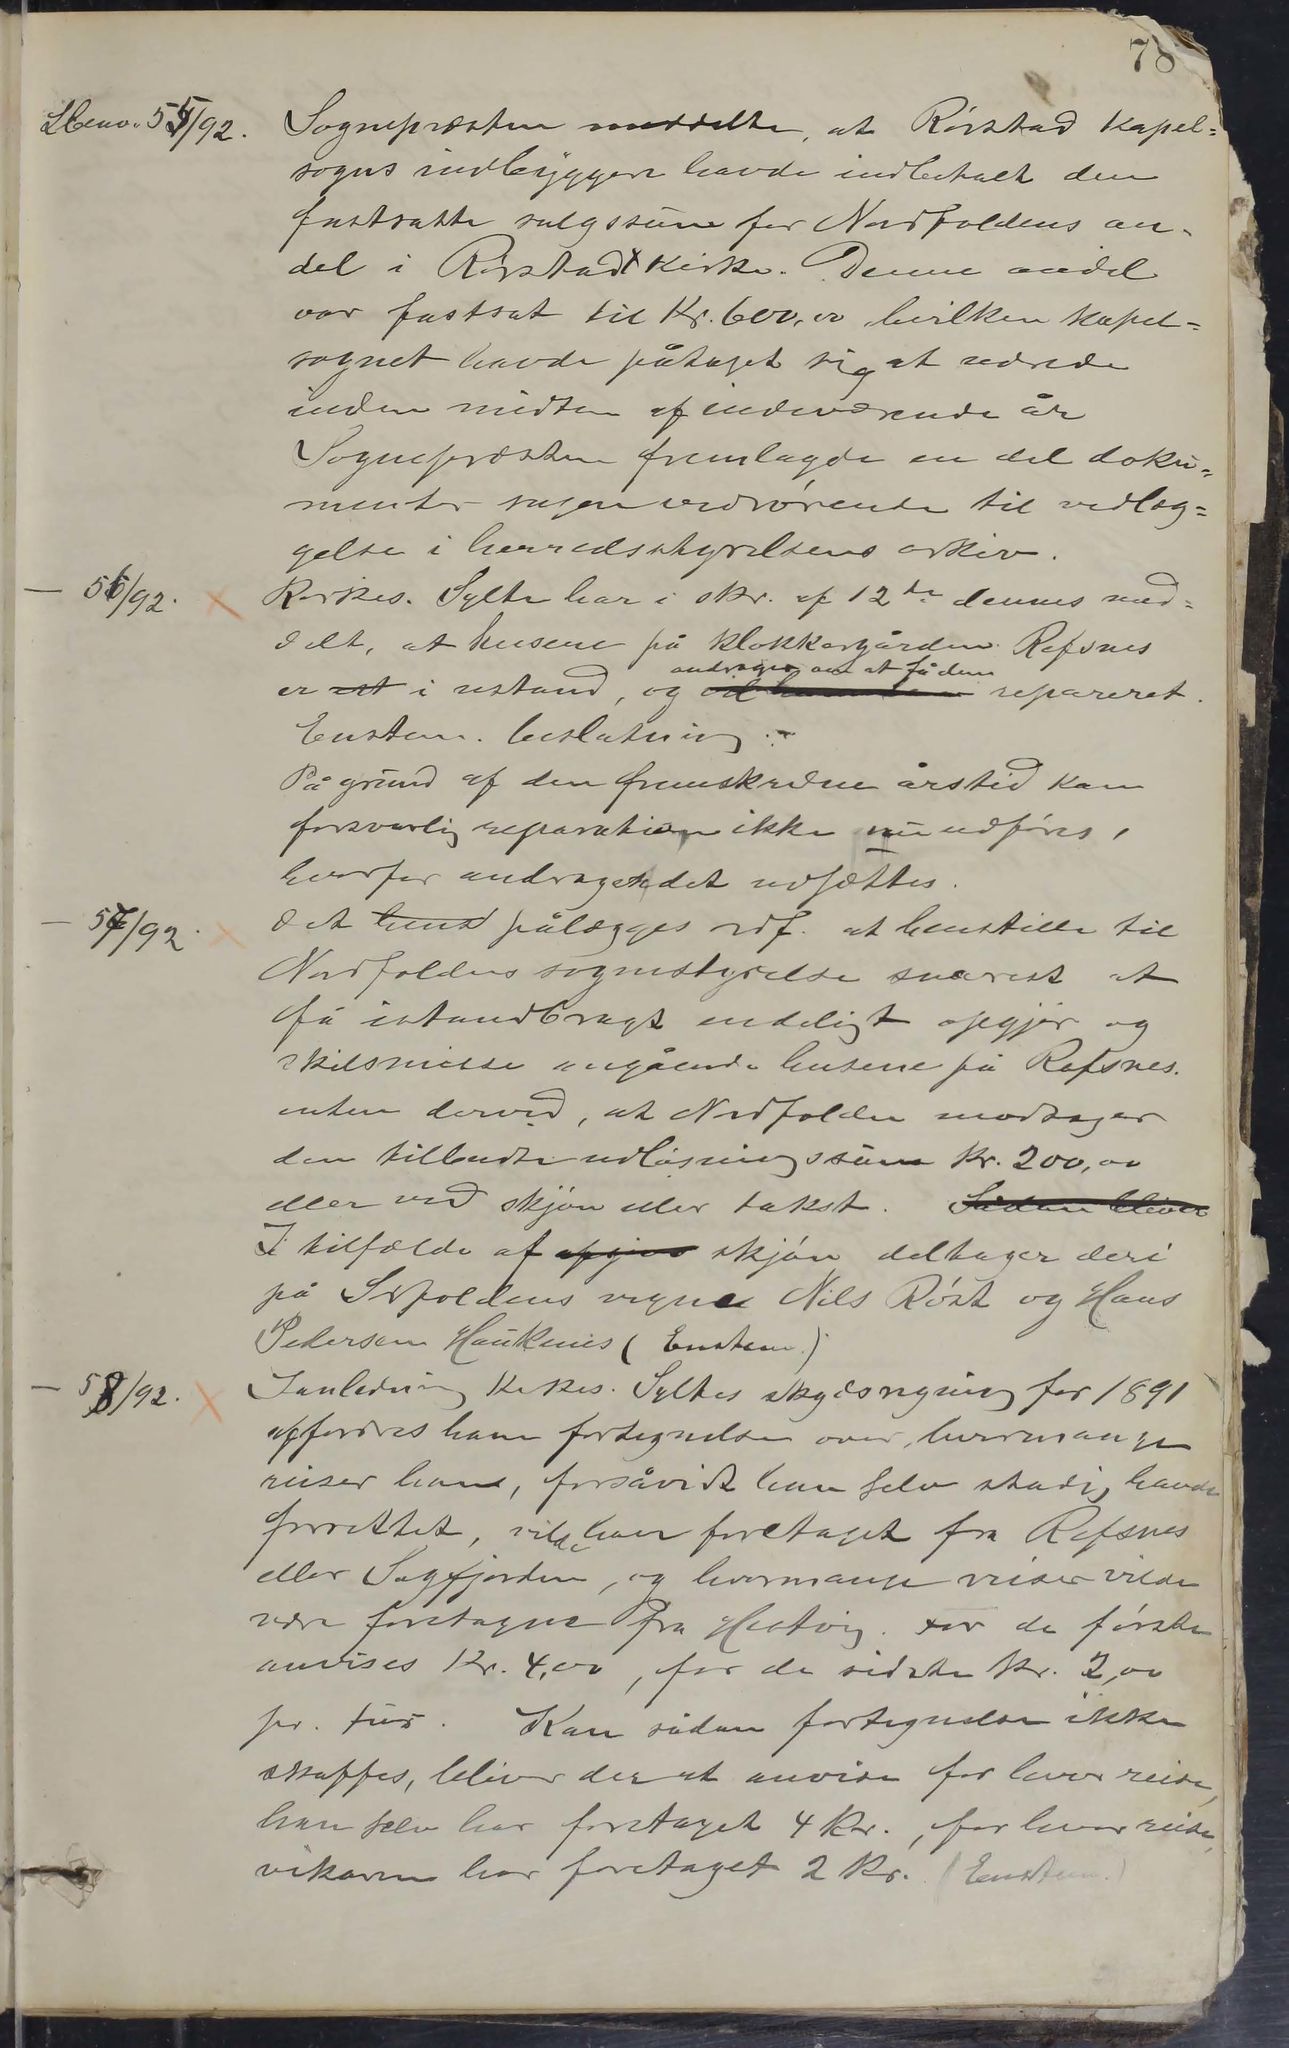 78
Sbno. 55/92. Sognepræsten meddelte, at Rørstad kapel=
sogns indbyggere havde indbetalt den
fastsatte salgssum for Nordfoldens an-
del i Rørstad kirke. Denne andel
var fastsat til Kr. 600,00 hvilken kapel=
sognet havde påtaget sig at udrede
inden midten af indeværende år
Sognepræsten fremlagde en del doku=
menter sagen vedrørende til vedlæg=
gelse i herredsstyrelsens arkiv.
— 56/92. Kirkes. Sylte har i skr. af 12te dennes med=
delt, at husene på klokkergården Refsnes
andrager om at få dem
er i ustand, og repareret.
Enstem. beslutning:-
På grund af den fremskredne årstid kan
forsvarlig reparation ikke nu udføres,
hvorfor andragendet udsættes.
— 57/92. Det pålægges rdf. at henstille til
Nordfoldens sognestyrelse snarest at
få istandbragt endeligt opgjør og
skilsmisse angående husene på Refsnes.
enten derved, at Nordfolden modtager
den tilbudte udløsningssum Kr. 200,00
eller ved skjøn eller takst. Sådan bliver
I tilfælde af opgjør skjøn deltager deri
på Sørfoldens vegne Nils Røst og Hans
Pedersen Hauknes (Enstem.)
— 58/92. I anledning Kirkes. Syltes skydsregning for 1891
opfordres ham fortegnelse over, hvormange
reiser han, forsåvidt han selv stadig havde
forrettet, vilde have foretaget fra Refsnes
eller Sagfjorden, og hvormange reiser vilde
være foretagne fra Hestvig. For de første
anvises Kr. 4,00, for de sidste Kr. 2,00
pr. tur. Kan sådan fortegnelse ikke
skaffes, bliver der at anvise for hver reise,
han selv har foretaget 4 Kr., for hver reise,
vikaren har foretaget 2 Kr. (Enstem.)